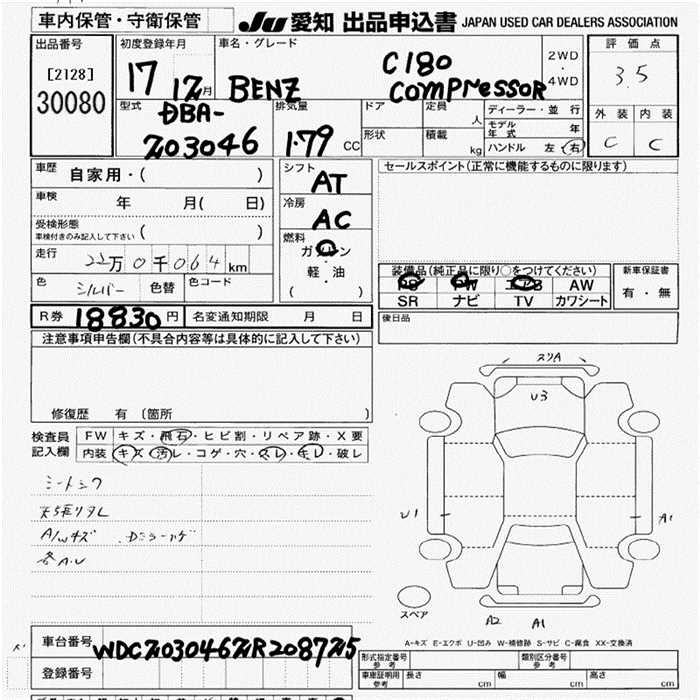 車内保管・守衛保管
JU 愛知 出品申込書 JAPAN USED CAR DEALERS ASSOCIATION
出品番号
[2128]
30080
初度登録年月
17 12月
車名・グレード
BENZ
C180
COMPRESSOR
2WD
・
4WD
評価点
3.5
型式
DBA-
203046
排気量
1.79 CC
ドア
定員
人
形状
積載
kg
ディーラー・並行
モデル年式 年
ハンドル 左・右
外装 内装
C C
車歴 自家用・( )
車検 年 月( 日)
受検形態
車検付きのみ記入して下さい ( )
走行 22万0千064km
色 シルバー 色替 色コード
シフト
AT
冷房
AC
燃料
ガソリン
・
軽・油
( )
セールスポイント(正常に機能するものに限ります)
装備品(純正品に限り○をつけてください)
PS PW エアB AW
SR ナビ TV カワシート
新車保証書
有・無
後日品
R券 18830円 名変通知期限 月 日
注意事項申告欄(不具合内容等は具体的に記入して下さい)
修復歴 有 〔箇所 〕
検査員
記入欄
FW キズ・飛石・ヒビ割・リペア跡・X要
内装 キズ・汚レ・コゲ・穴・スレ・キレ・破レ
シートシワ
天張りタレ
A/Wキズ
各A・U
スリA
U3
U1
A1
スペア
A2 A1
A-キズ E-エクボ U-凹み W-補修跡 S-サビ C-腐食 XX-交換済
車台番号 WDC2030462R208725
登録番号
形式指定番号
参考
類別区分番号
参考
車庫証明用
参考
長さ cm 幅 cm 高さ cm